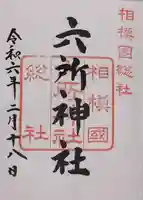 相模國総社
六所神社
相模國
総社
令和六年二月十八日